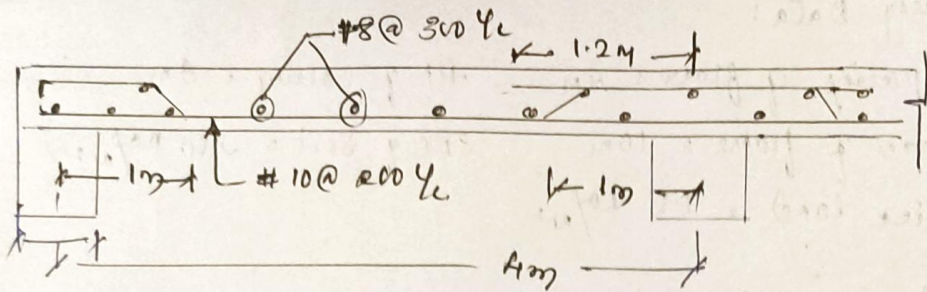 #8@ 300 c/c
1.2M
1m
#10@ 200 c/c
1m
4m